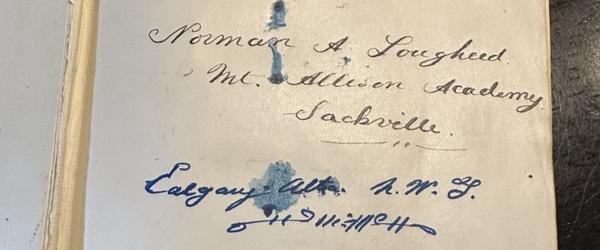 Norman A. Lougheed.
Mt. Allison Academy
Sackville.
Calgary. Alta. N. W. T.